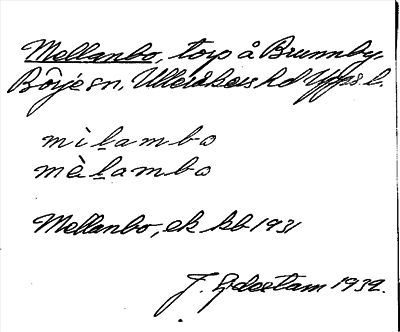 Mellanbo, torp å Brunnby,
Börje sn, Ulleråkers hd Upps. l.
mìḻambo
mèḻambo
Mellanbo, ek kb 1931
J. Götlind 1932.